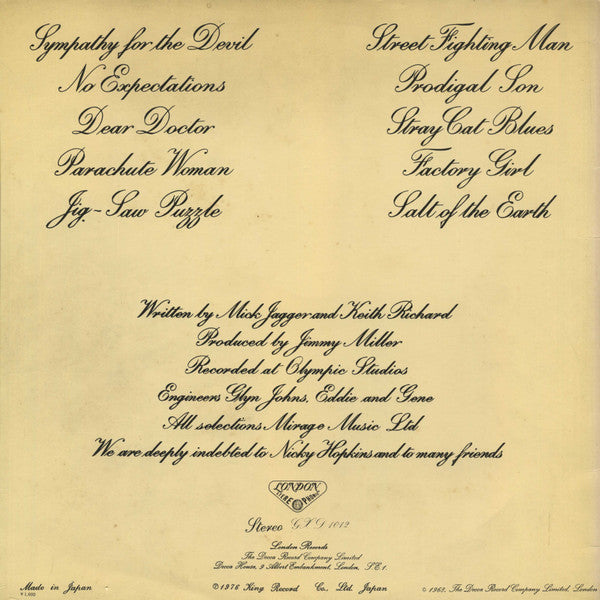 Sympathy for the Devil
No Expectations
Dear Doctor
Parachute Woman
Jig-Saw Puzzle
Street Fighting Man
Prodigal Son
Stray Cat Blues
Factory Girl
Salt of the Earth
Written by Mick Jagger and Keith Richard
Produced by Jimmy Miller
Recorded at Olympic Studios
Engineers Glyn Johns, Eddie and Gene
All selections Mirage Music Ltd
We are deeply indebted to Nicky Hopkins and to many friends
LONDON
PHONIC
Stereo GXD 1012
London Records
The Decca Record Company Limited
Decca House, 9 Albert Embankment, London, S.E.1.
Made in Japan
℗ 1976 King Record Co., Ltd. Japan
© 1968, The Decca Record Company Limited, London